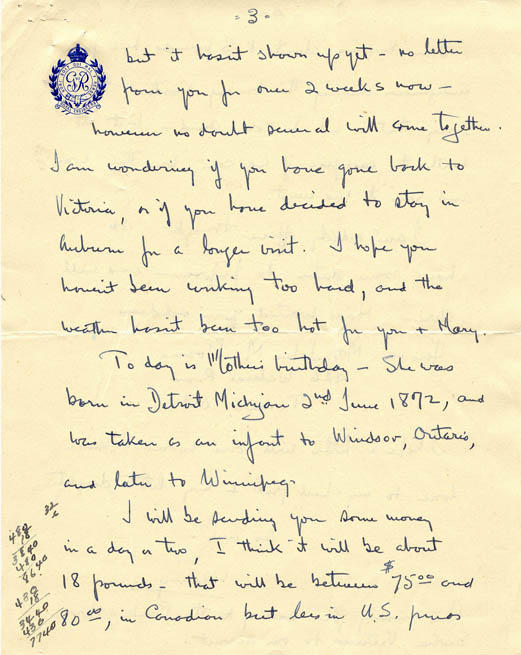 - 3 -
but it hasn't shown up yet - no letter
from you for over 2 weeks now -
however no doubt several will come together.
I am wondering if you have gone back to
Victoria, or if you have decided to stay in
Auburn for a longer visit. I hope you
haven't been working too hard, and the
weather hasn't been too hot for you + Mary.
To day is Mother's birthday - She was
born in Detroit Michigan 2nd June 1872, and
was taken as an infant to Windsor, Ontario,
and later to Winnipeg.
I will be sending you some money
in a day or two, I think it will be about
18 pounds - that will be between $75.00 and
80.00, in Canadian but less in U.S. funds
480
18
3840
480
8640
430
18
3440
430
7740